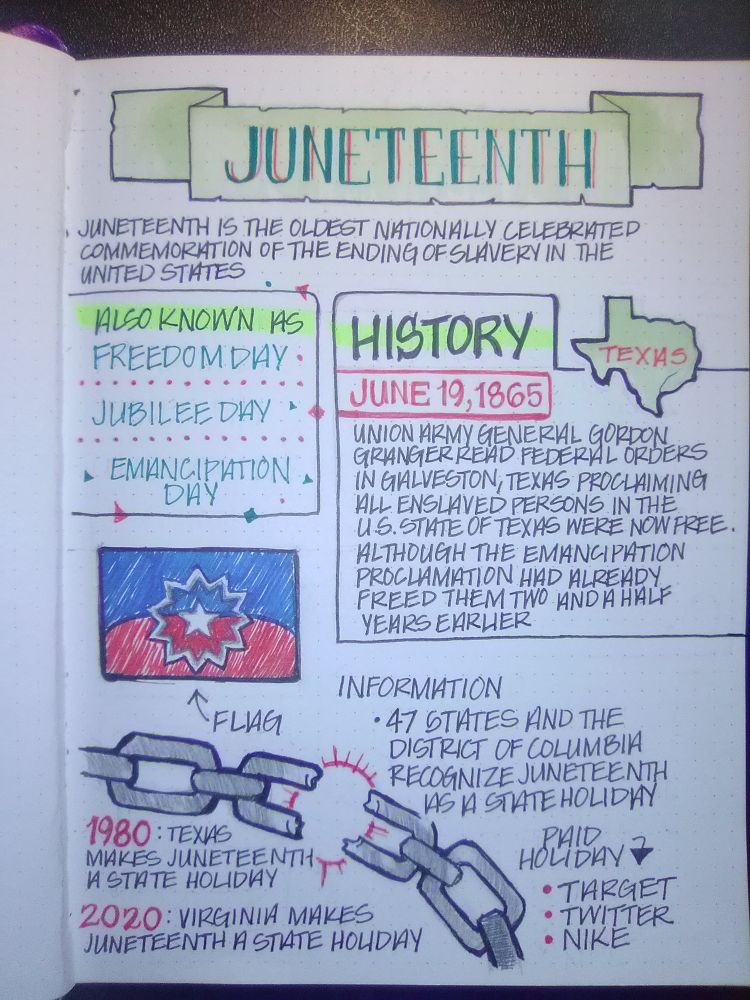 JUNETEENTH
JUNETEENTH IS THE OLDEST NATIONALLY CELEBRATED
COMMEMORATION OF THE ENDING OF SLAVERY IN THE
UNITED STATES
ALSO KNOWN AS
FREEDOM DAY
JUBILEE DAY
EMANCIPATION
DAY
HISTORY
TEXAS
JUNE 19, 1865
UNION ARMY GENERAL GORDON
GRANGER READ FEDERAL ORDERS
IN GALVESTON, TEXAS PROCLAIMING
ALL ENSLAVED PERSONS IN THE
U.S. STATE OF TEXAS WERE NOW FREE.
ALTHOUGH THE EMANCIPATION
PROCLAMATION HAD ALREADY
FREED THEM TWO AND A HALF
YEARS EARLIER
FLAG
INFORMATION
• 47 STATES AND THE
DISTRICT OF COLUMBIA
RECOGNIZE JUNETEENTH
AS A STATE HOLIDAY
1980: TEXAS
MAKES JUNETEENTH
A STATE HOLIDAY
2020: VIRGINIA MAKES
JUNETEENTH A STATE HOLIDAY
PAID
HOLIDAY
• TARGET
• TWITTER
• NIKE